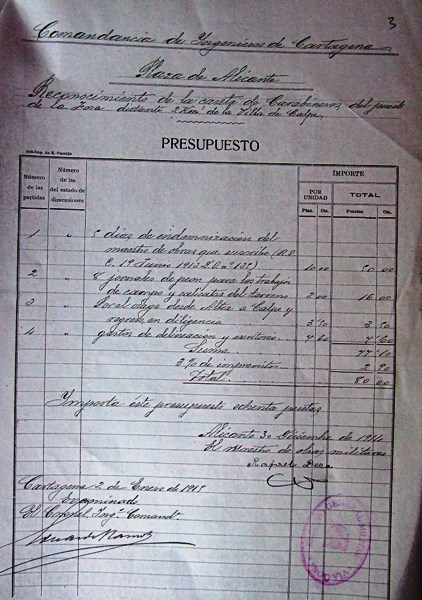 3
Comandancia de Ingenieros de Cartagena
Plaza de Alicante
Reconocimiento de la caseta de Carabineros del puesto
de la Fosa distante 2 Km. de la Villa de Calpe
PRESUPUESTO
Número de las partidas
Número de las del estado de dimensiones
IMPORTE
POR UNIDAD
TOTAL
Ptas. Cts. Pesetas Cts.
1 " 5 dias de indemnizacion del
maestro de obras que suscribe (R.O.
C. 1º Junio 1912 D.O. nº ) 10 00 50 00
2 8 jornales de peon para los trabajos
de campo y calicatas del terreno 2 00 16 00
3 " Local desde Altea a Calpe y
regreso, en diligencia 3 50 3 50
4 " gastos de delineacion y escritorio 7 60 7 60
Suma 77 10
3% de imprevistos 2 90
Total 80 00
Importa éste presupuesto ochenta pesetas
Alicante 30 Diciembre de 1914
El Maestro de obras militares
Rafael
Cartagena 2 de Enero de 1915
Examinado
El Coronel Ingº Comandt.
Eduardo Ramos